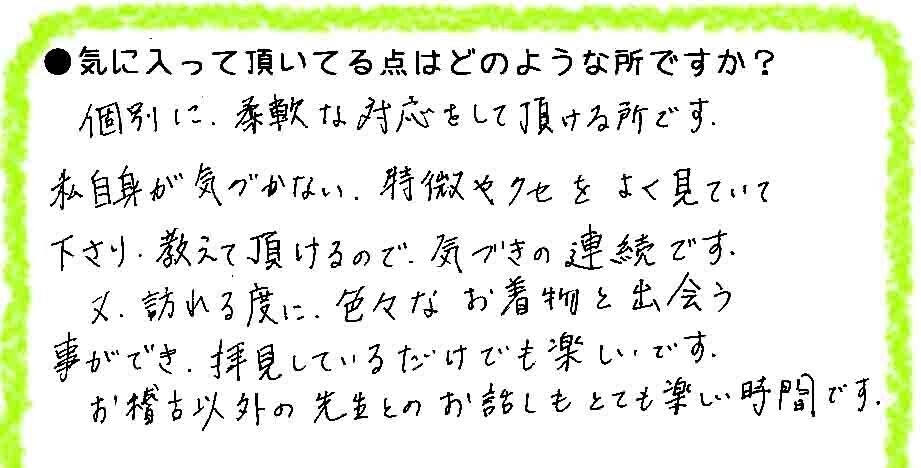 ●気に入って頂いてる点はどのような所ですか？
個別に、柔軟な対応をして頂ける所です。
私自身が気づかない、特徴やクセをよく見ていて
下さり、教えて頂けるので、気づきの連続です。
又、訪れる度に、色々なお着物と出会う
事ができ、拝見しているだけでも楽しいです。
お稽古以外の先生とのお話しもとても楽しい時間です。